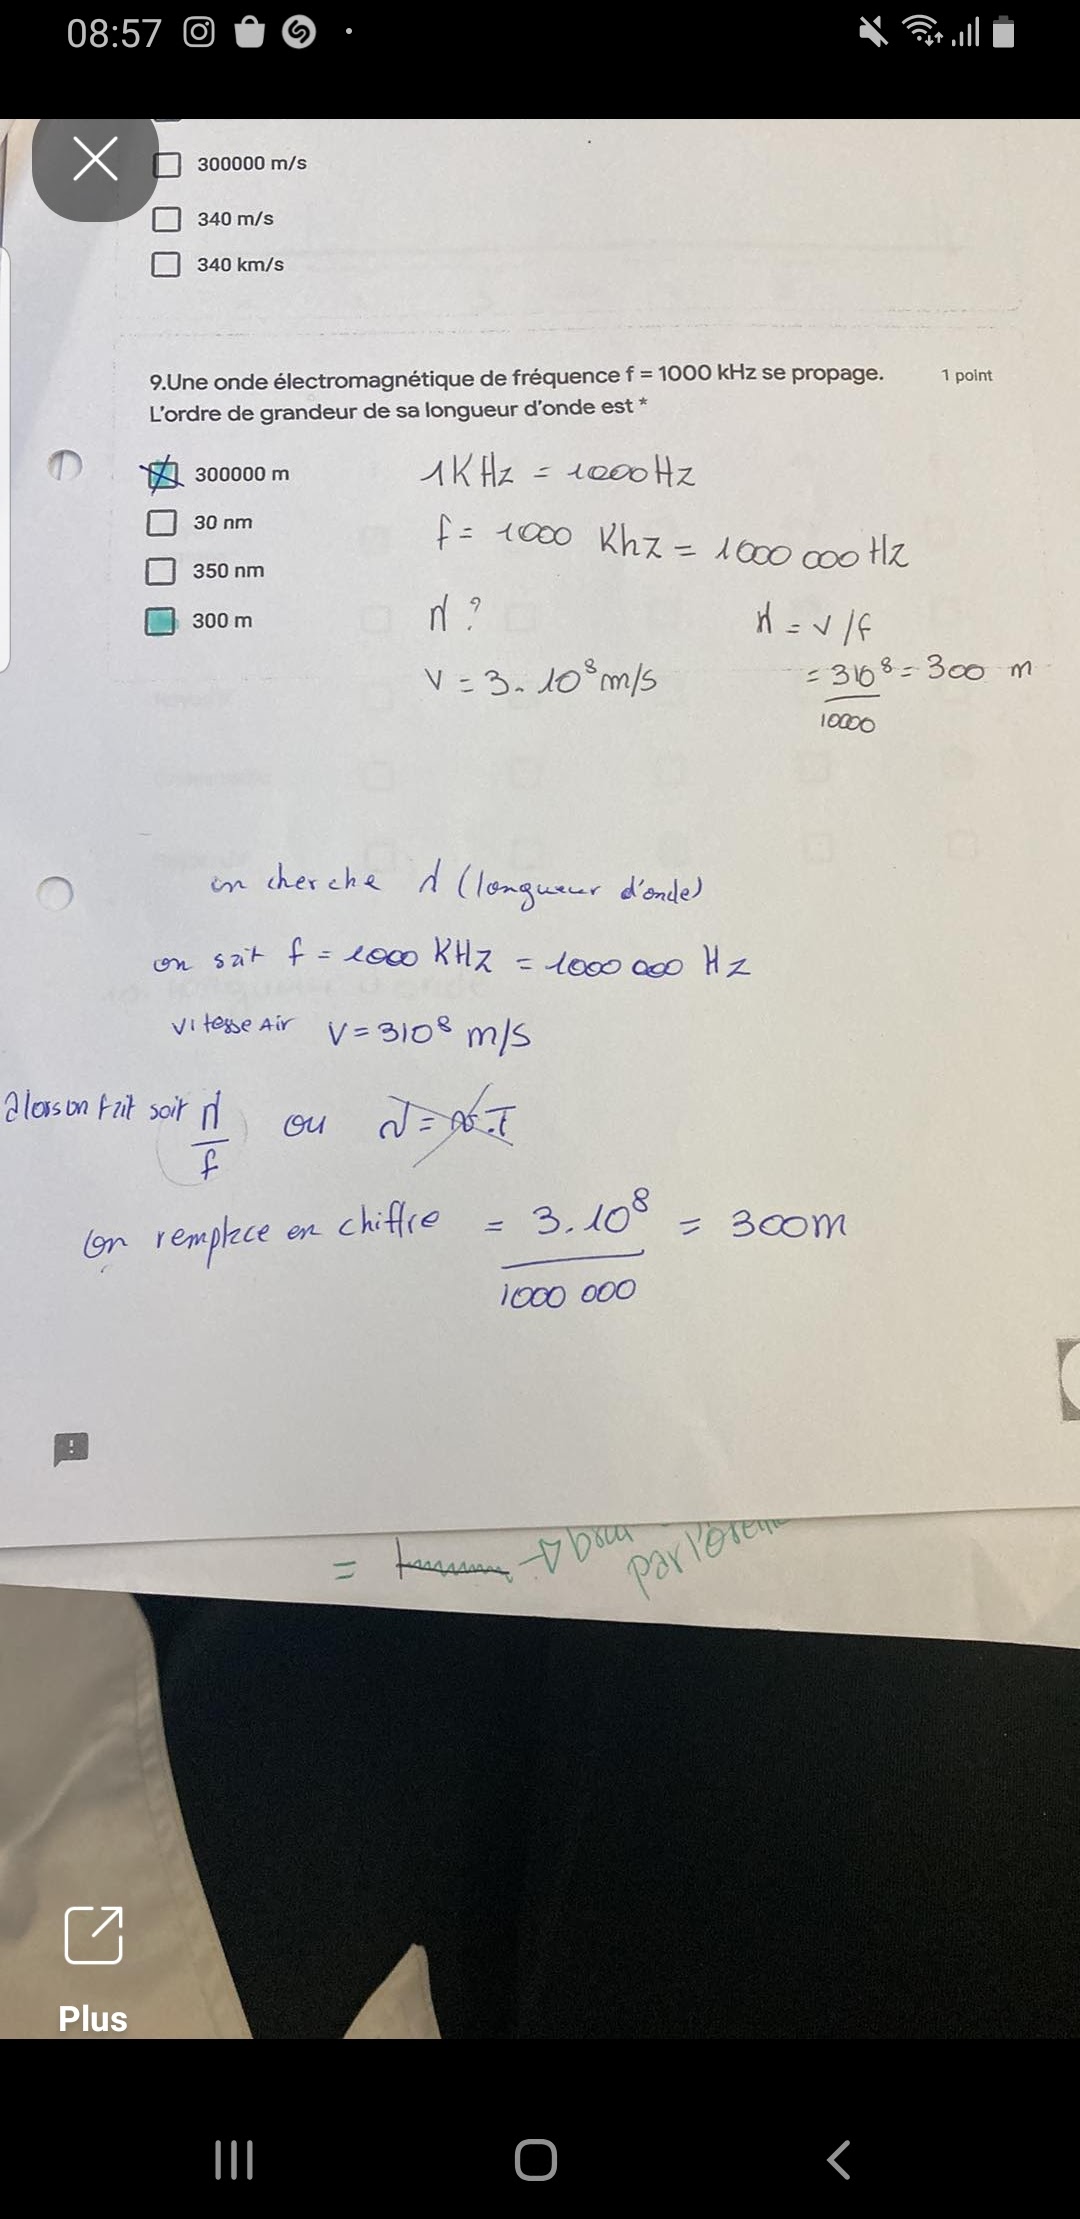 08:57
300000 m/s
340 m/s
340 km/s
9.Une onde électromagnétique de fréquence f = 1000 kHz se propage. 1 point
L'ordre de grandeur de sa longueur d'onde est *
300000 m
30 nm
350 nm
300 m
1KHz = 1000Hz
f = 1000 Khz = 1000 000 Hz
λ ?
λ = v/f
V = 3. 10⁸ m/s
= 310⁸ = 300 m
10000
on cherche λ (longueur d'onde)
on sait f = 1000 KHz = 1000 000 Hz
vitesse Air V = 310⁸ m/s
alors on fait soit λ/f ou
on remplace en chiffre = 3.10⁸ = 300m
1000 000
=
par l'
Plus